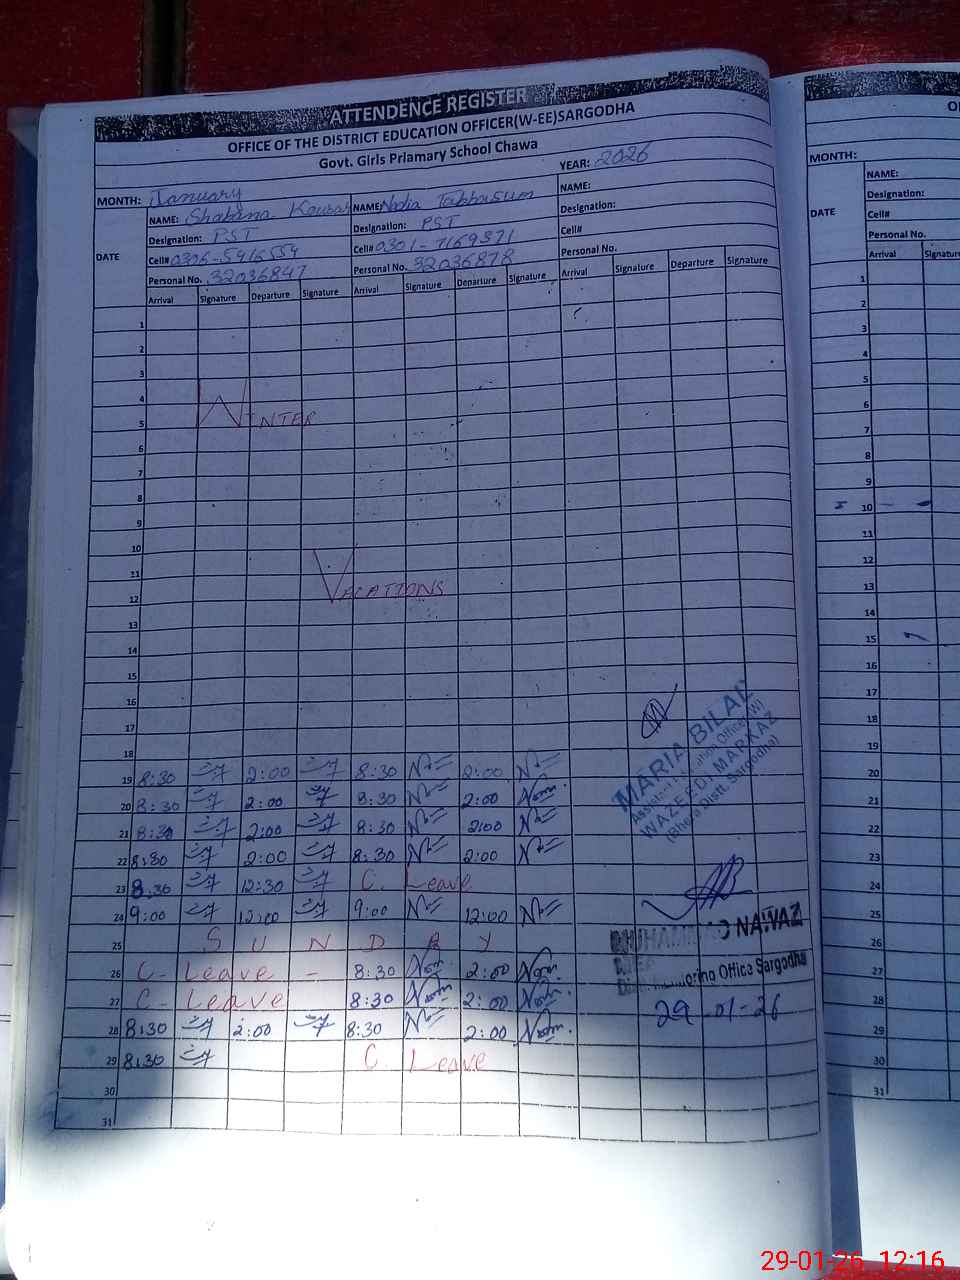 ATTENDENCE REGISTER
OFFICE OF THE DISTRICT EDUCATION OFFICER(W-EE)SARGODHA
Govt. Girls Priamary School Chawa
MONTH: January YEAR: 2026
NAME: Shabana Kousar NAME: Nadia Tabbasum NAME:
Designation: PST Designation: PST Designation:
DATE Cell# 0306-5916554 Cell# 0301-7169371 Cell#
Personal No. 32036847 Personal No. 32036878 Personal No.
Arrival Signature Departure Signature Arrival Signature Departure Signature Arrival Signature Departure Signature
1
2
3
4
5 WINTER
6
7
8
9
10
11
12 VACATIONS
13
14
15
16
17
18
19 8:30 2:00 8:30 2:00
20 8:30 2:00 8:30 2:00
21 8:30 2:00 8:30 2:00
22 8:30 2:00 8:30 2:00
23 8:30 12:30 C. Leave
24 9:00 12:00 9:00 12:00
25 SUNDAY
26 C- Leave - 8:30 2:00
27 C- Leave 8:30 2:00
28 8:30 2:00 8:30 2:00
29 8:30 C. Leave
30
31
MARIA BILAL
Assistant Education Officer (W)
WAZEEDI MARKAZ
(Bhera Distt. Sargodha)
MUHAMMAD NAWAZ
Monitoring Office Sargodha
29-01-26
MONTH:
NAME:
Designation:
DATE Cell#
Personal No.
Arrival Signature
1
2
3
4
5
6
7
8
9
10
11
12
13
14
15
16
17
18
19
20
21
22
23
24
25
26
27
28
29
30
31
29-01-26 12:16